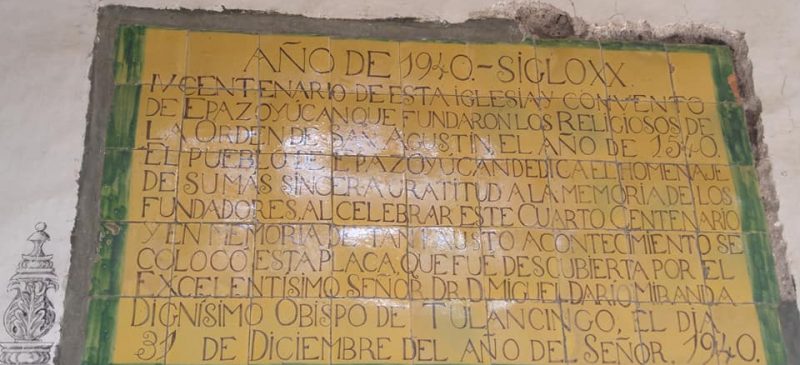 AÑO DE 1940.-SIGLO XX.
IV CENTENARIO DE ESTA IGLESIA Y CONVENTO
DE EPAZOYUCAN QUE FUNDARON LOS RELIGIOSOS DE
LA ORDEN DE SAN AGUSTIN, EL AÑO DE 1540.
EL PUEBLO DE EPAZOYUCAN DEDICA EL HOMENAJE
DE SU MAS SINCERA GRATITUD A LA MEMORIA DE LOS
FUNDADORES, AL CELEBRAR ESTE CUARTO CENTENARIO
Y EN MEMORIA DE TAN FAUSTO ACONTECIMIENTO SE
COLOCO ESTA PLACA QUE FUE DESCUBIERTA POR EL
EXCELENTISIMO SEÑOR DR. D. MIGUEL DARIO MIRANDA
DIGNISIMO OBISPO DE TULANCINGO, EL DIA
31 DE DICIEMBRE DEL AÑO DEL SEÑOR, 1940.